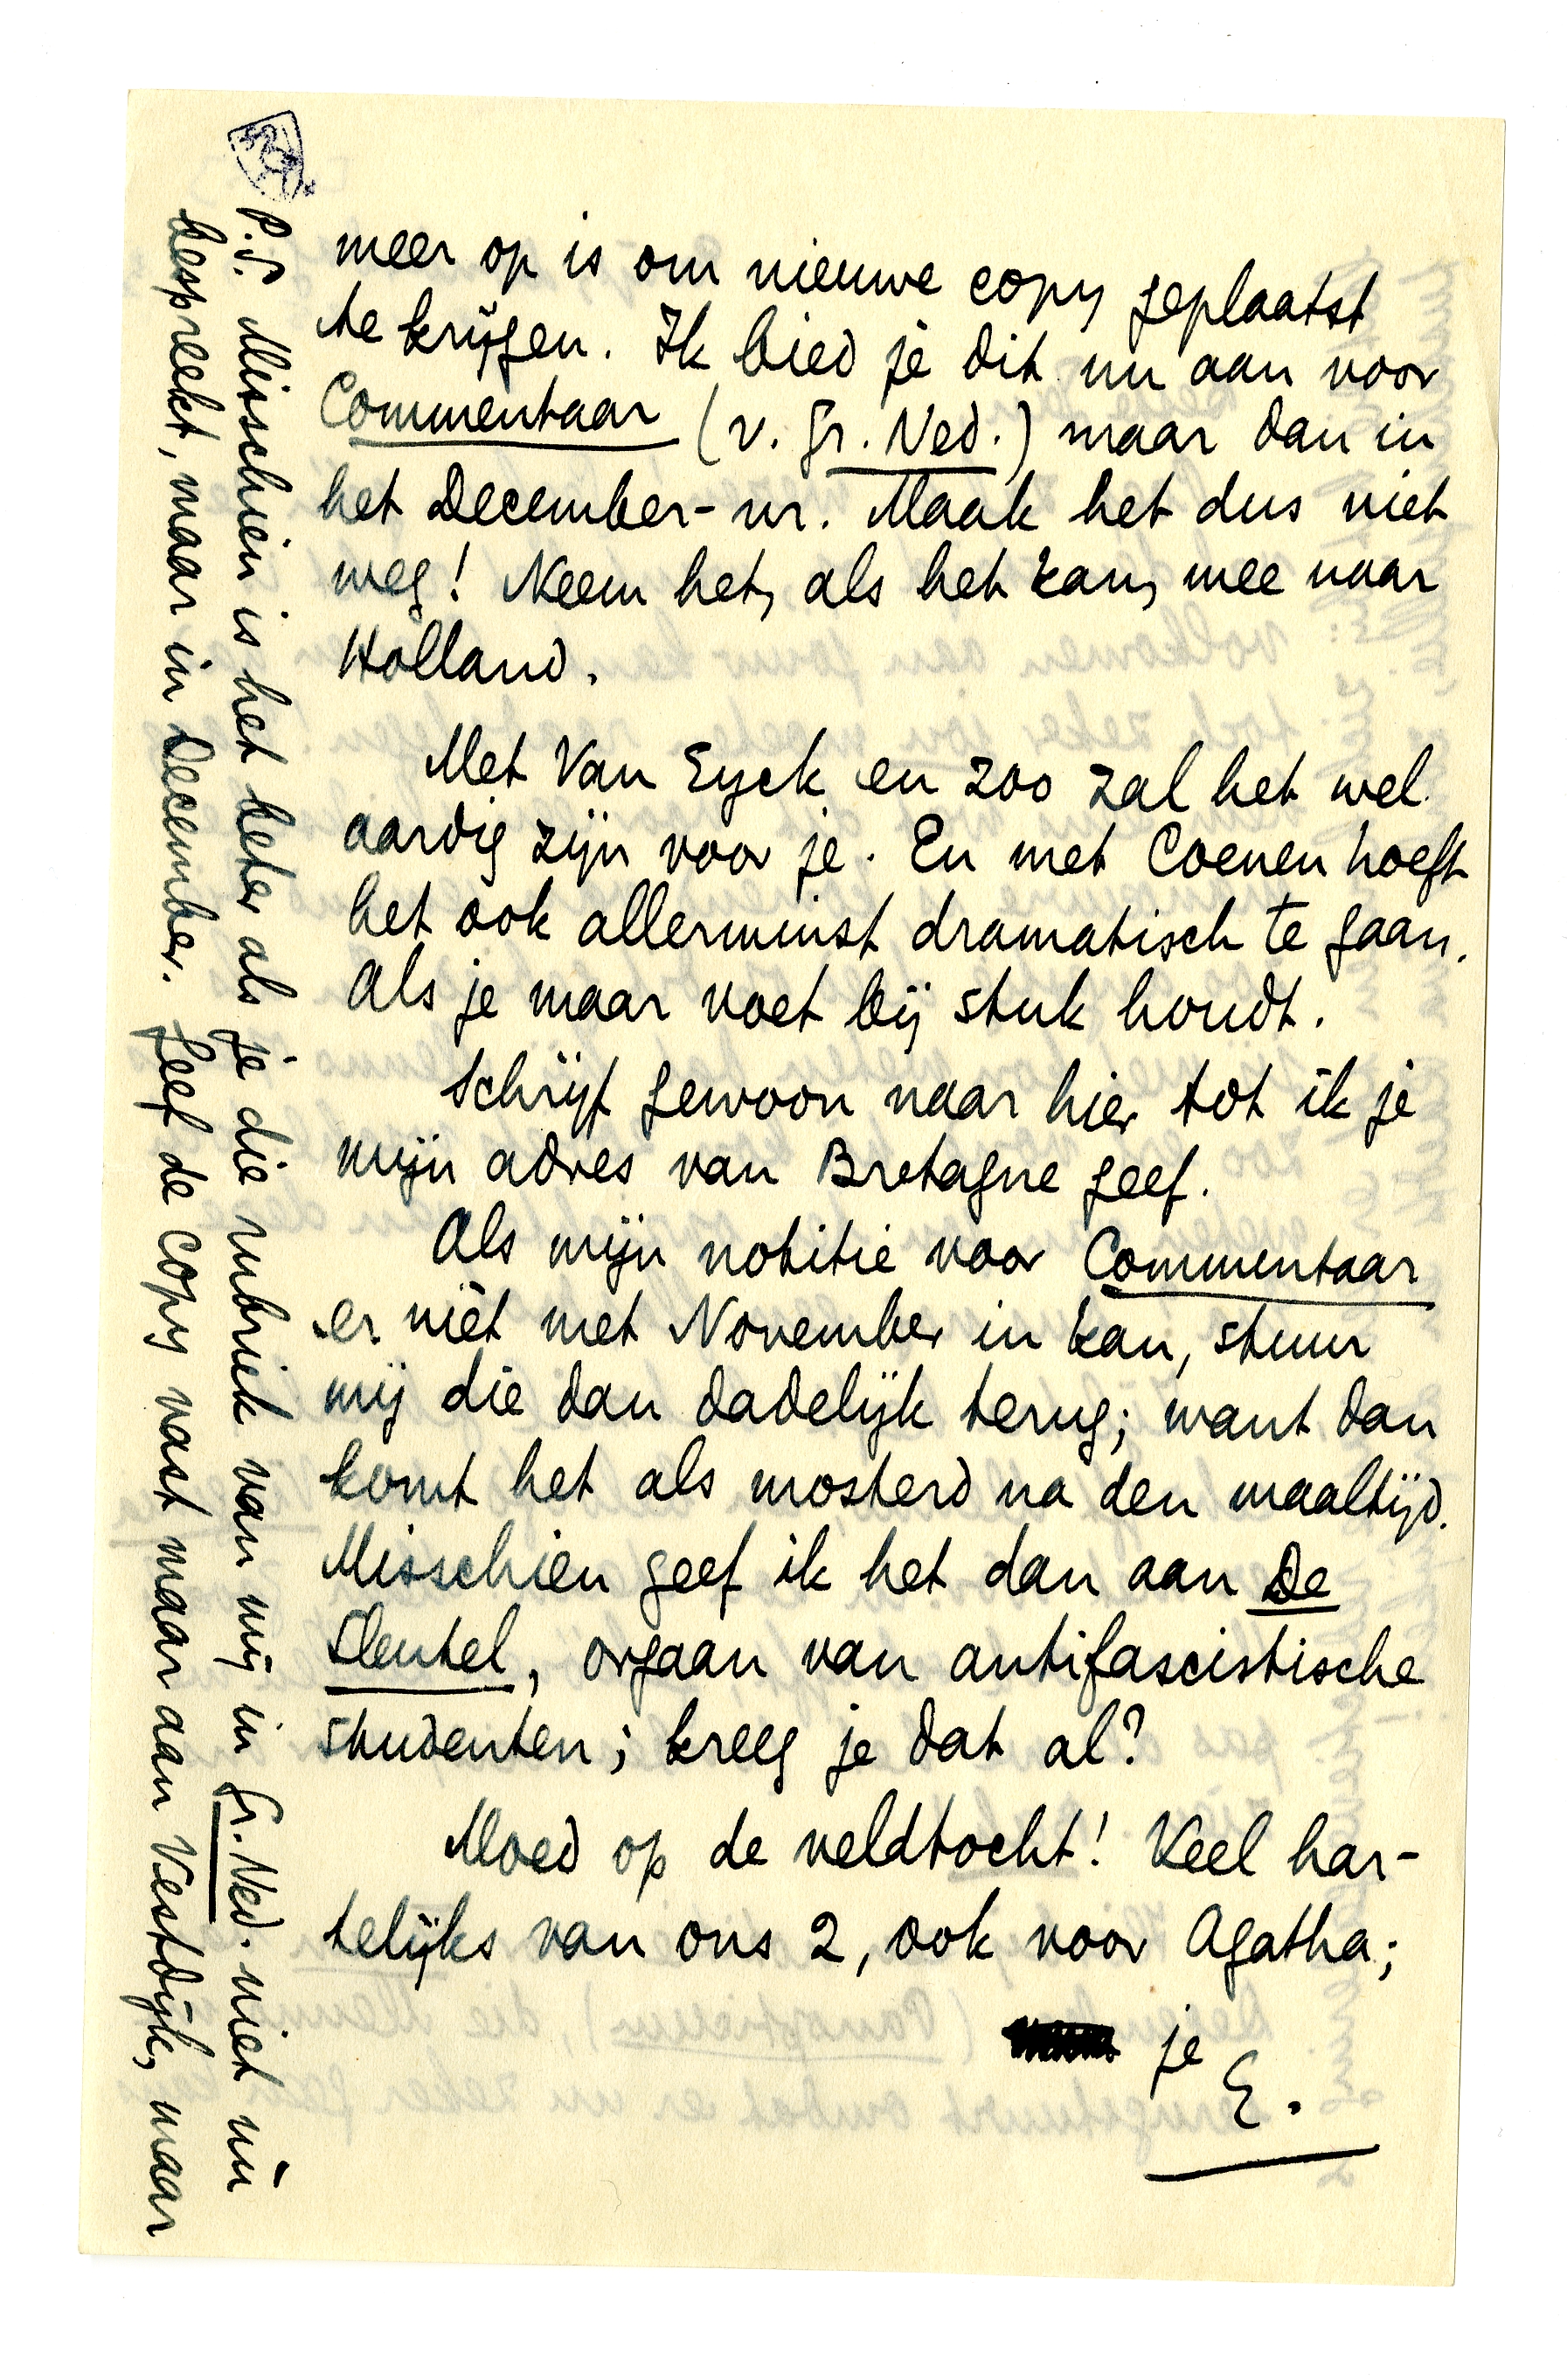 meer op is om nieuwe copy geplaatst
te krijgen. Ik bied je dit nu aan voor
Commentaar (v. Gr. Ned.) maar dan in
het December-nr. Maak het dus niet
weg! Neem het, als het kan, mee naar
Holland.
Met Van Eyck en zoo zal het wel
aardig zijn voor je. En met Coenen hoeft
het ook allerminst dramatisch te gaan.
Als je maar voet bij stuk houdt.
Schrijf gewoon naar hier tot ik je
mijn adres van Bretagne geef.
Als mijn notitie voor Commentaar
er nièt met November in kan, stuur
mij die dan dadelijk terug; want dan
komt het als mosterd na den maaltijd.
Misschien geef ik het dan aan De
Sleutel, orgaan van antifascistische
studenten; kreeg je dat al?
Moed op de veldtocht! Veel har-
telijks van ons 2, ook voor Agatha;
je
E.
P.S. Misschien is het beter als je die rubriek van mij in Gr. Ned. niet nù
bespreekt, maar in December. Geef de copy vast maar aan Vestdijk, maar